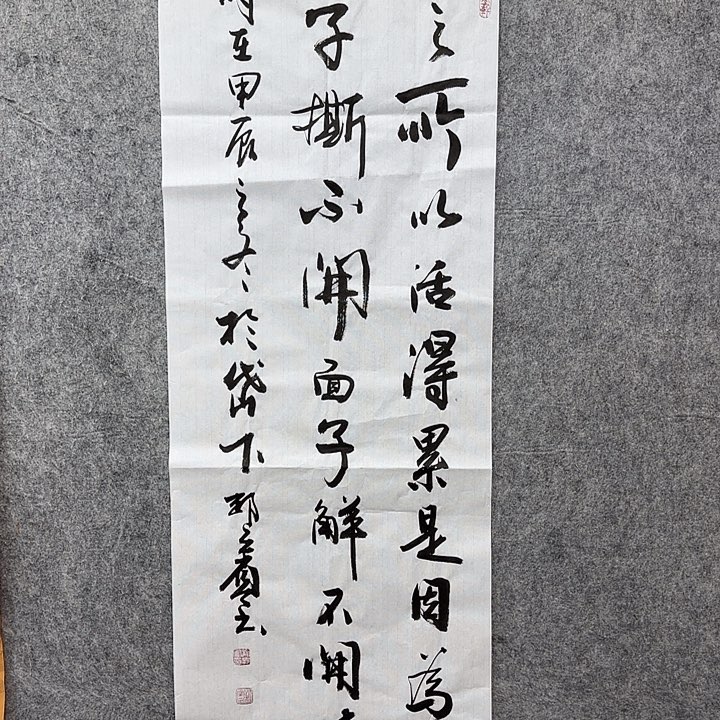 之所以活得累是因為
子撕不開面子解不開
時在甲辰之冬於岱下